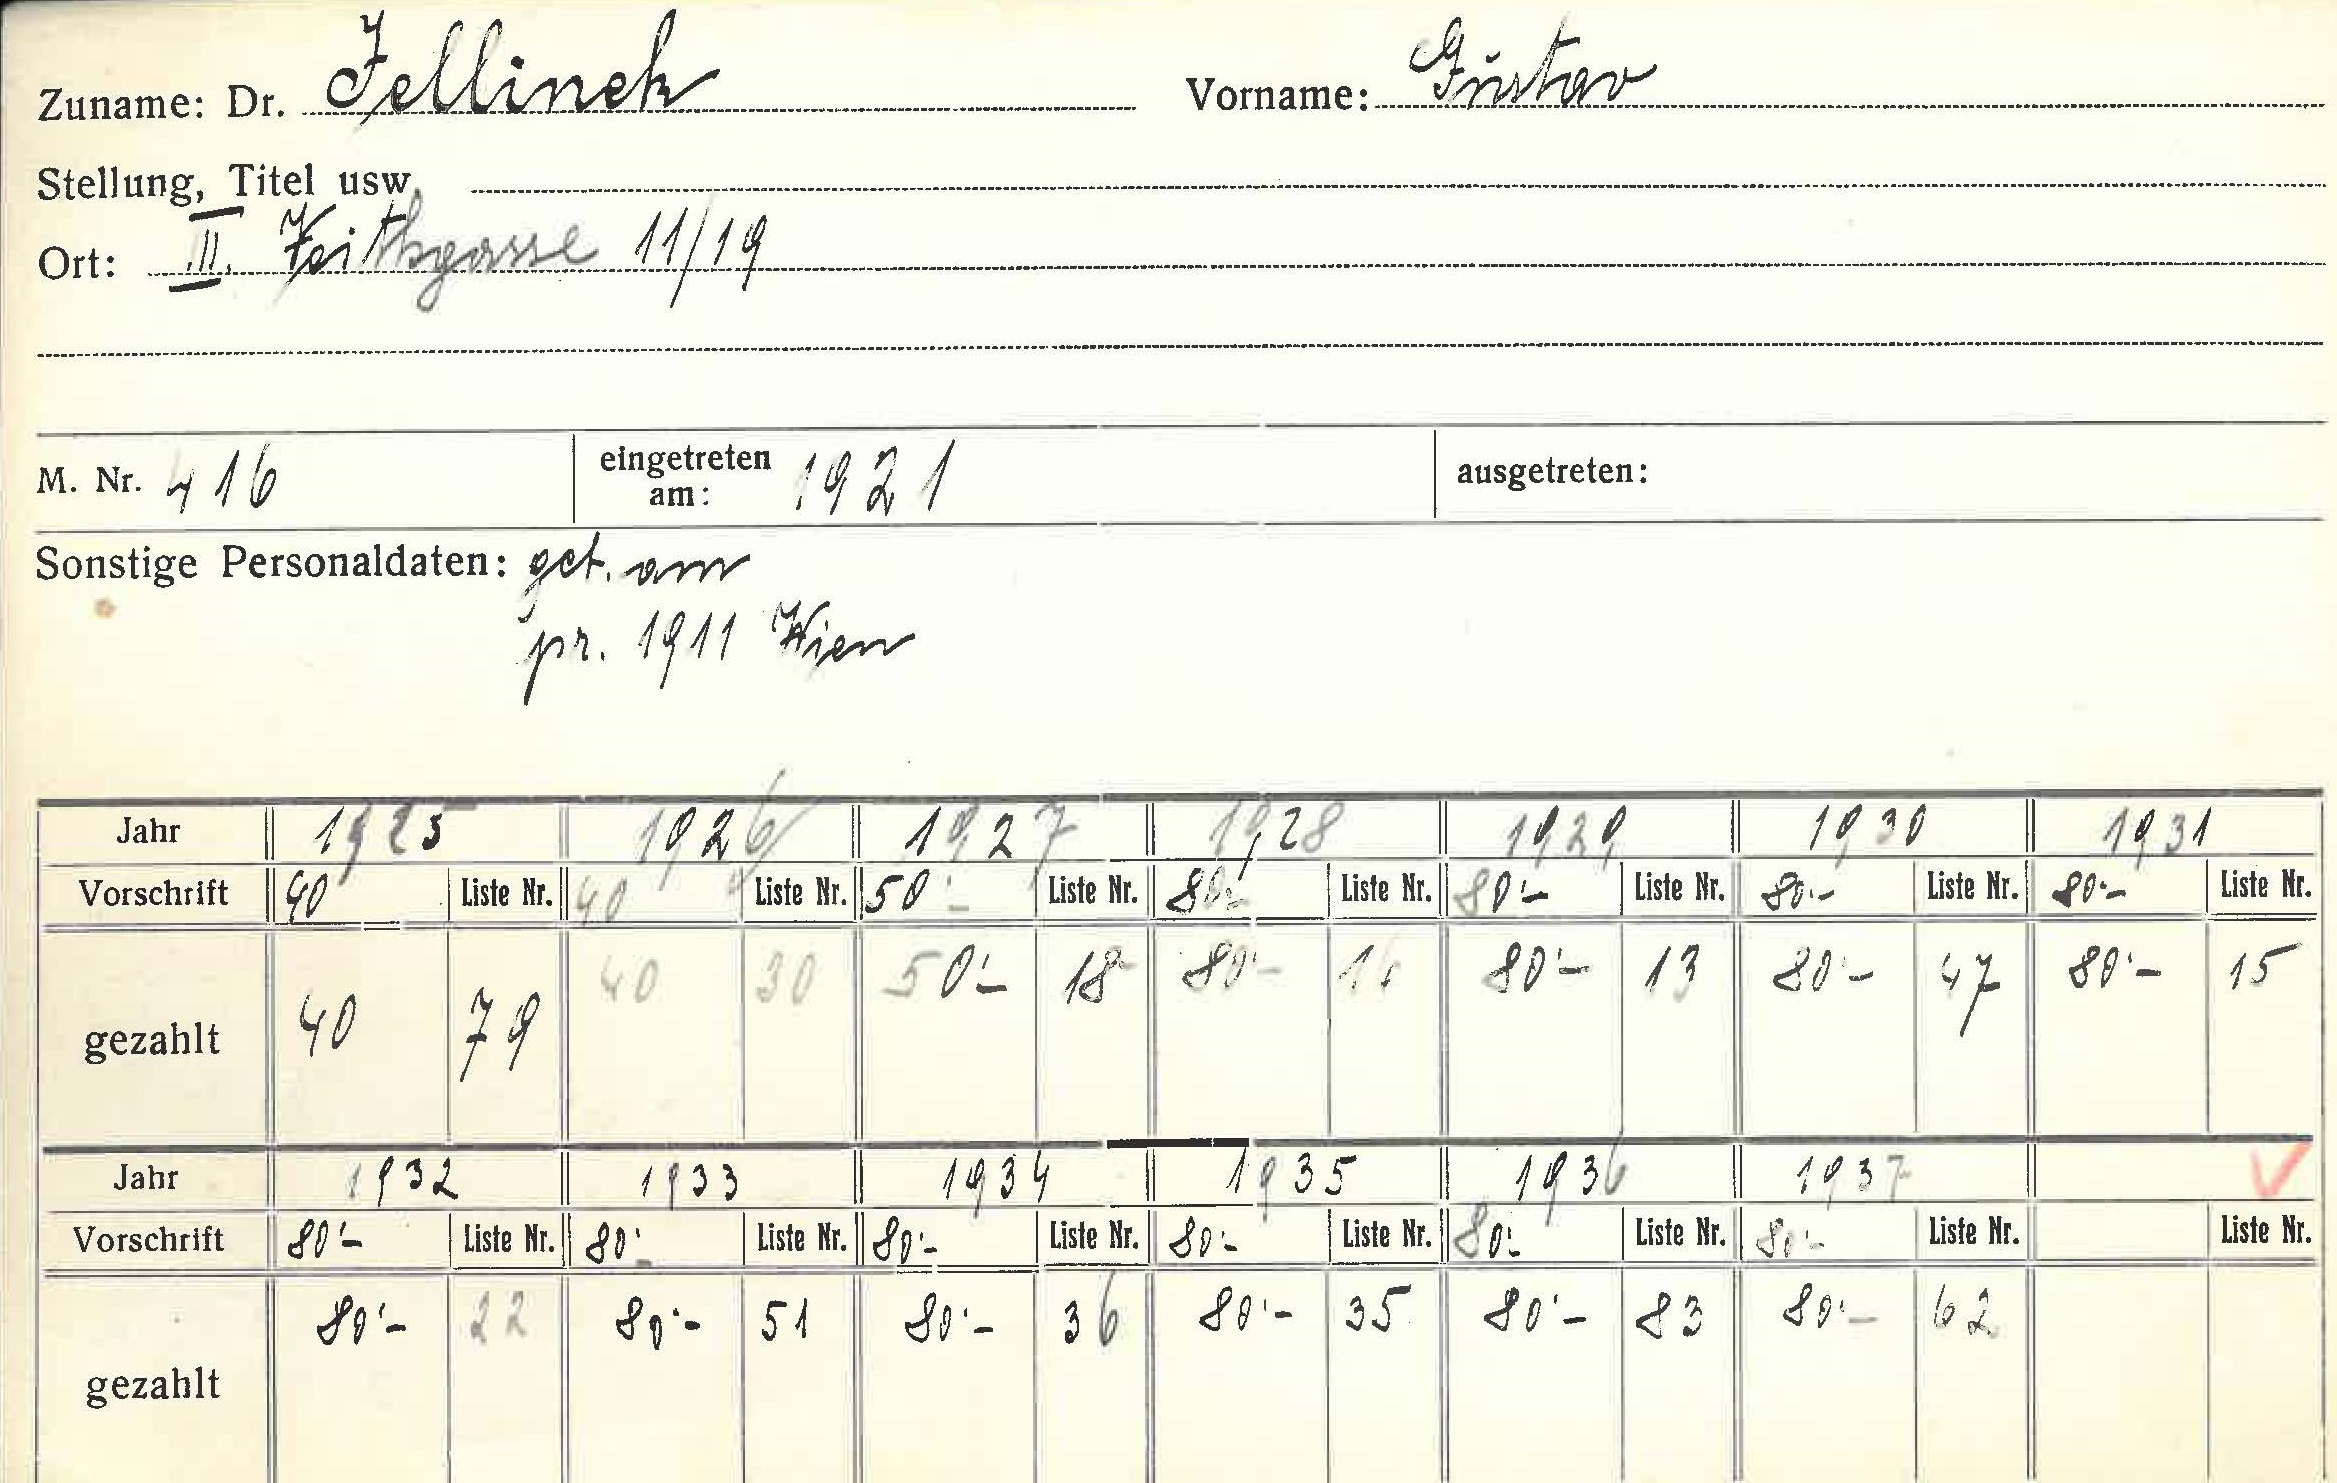 Zuname: Dr. Jellinek Vorname: Gustav
Stellung, Titel usw.
Ort: III. Veithgasse 11/19
M. Nr. 416 eingetreten am: 1921 ausgetreten:
Sonstige Personaldaten: geb. am
pr. 1911 Wien
Jahr 1925 1926 1927 1928 1929 1930 1931
Vorschrift 40 Liste Nr. 40 Liste Nr. 50'- Liste Nr. 80'- Liste Nr. 80'- Liste Nr. 80'- Liste Nr. 80'- Liste Nr.
gezahlt 40 79 40 30 50'- 18 80'- 80'- 13 80'- 47 80'- 15
Jahr 1932 1933 1934 1935 1936 1937
Vorschrift 80'- Liste Nr. 80'- Liste Nr. 80'- Liste Nr. 80'- Liste Nr. 80'- Liste Nr. 80'- Liste Nr. Liste Nr.
gezahlt 80'- 22 80'- 51 80'- 36 80'- 35 80'- 83 80'- 62